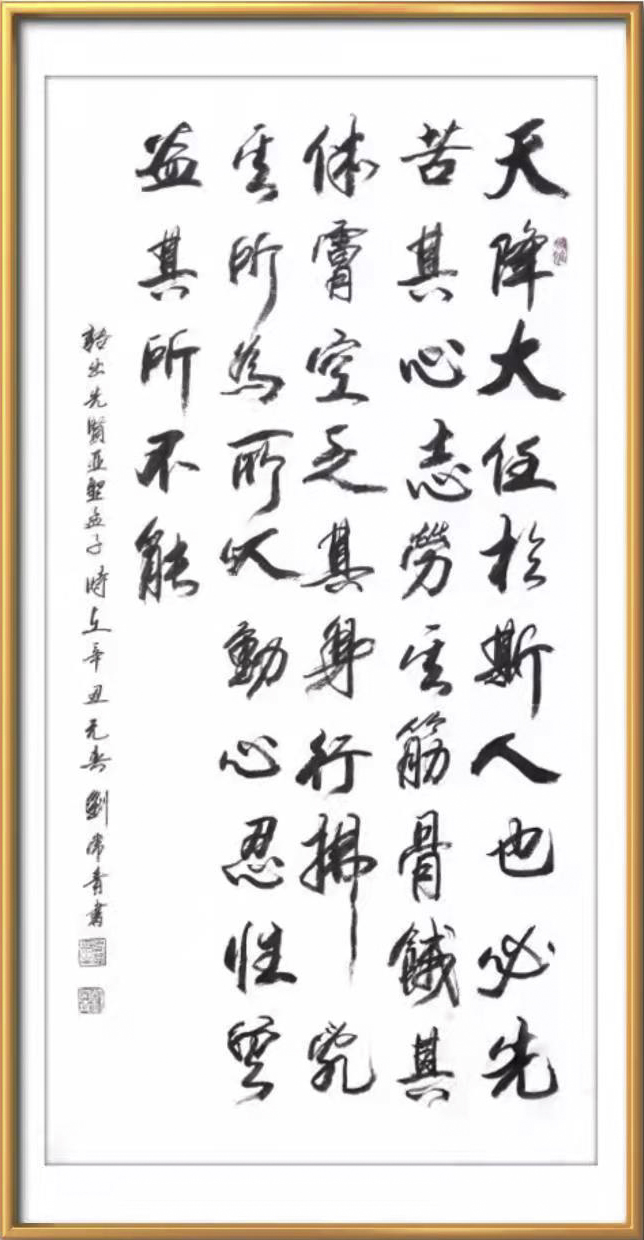 天降大任於斯人也必先
苦其心志勞其筋骨餓其
体膚空乏其身行拂亂
其所為所以動心忍性曾
益其所不能
出先賢亞聖孟子時在辛丑元春劉青書